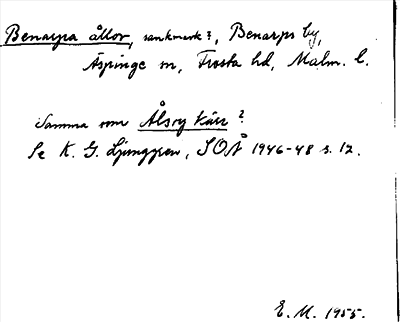 Benarpa ållor, sankmark?, Benarps by,
Äspinge sn, Frosta hd, Malm. l.
Samma som Ålsry kärr?
Se K. G. Ljunggren, SOÅ 1946-48 s. 12.
E. M. 1955.